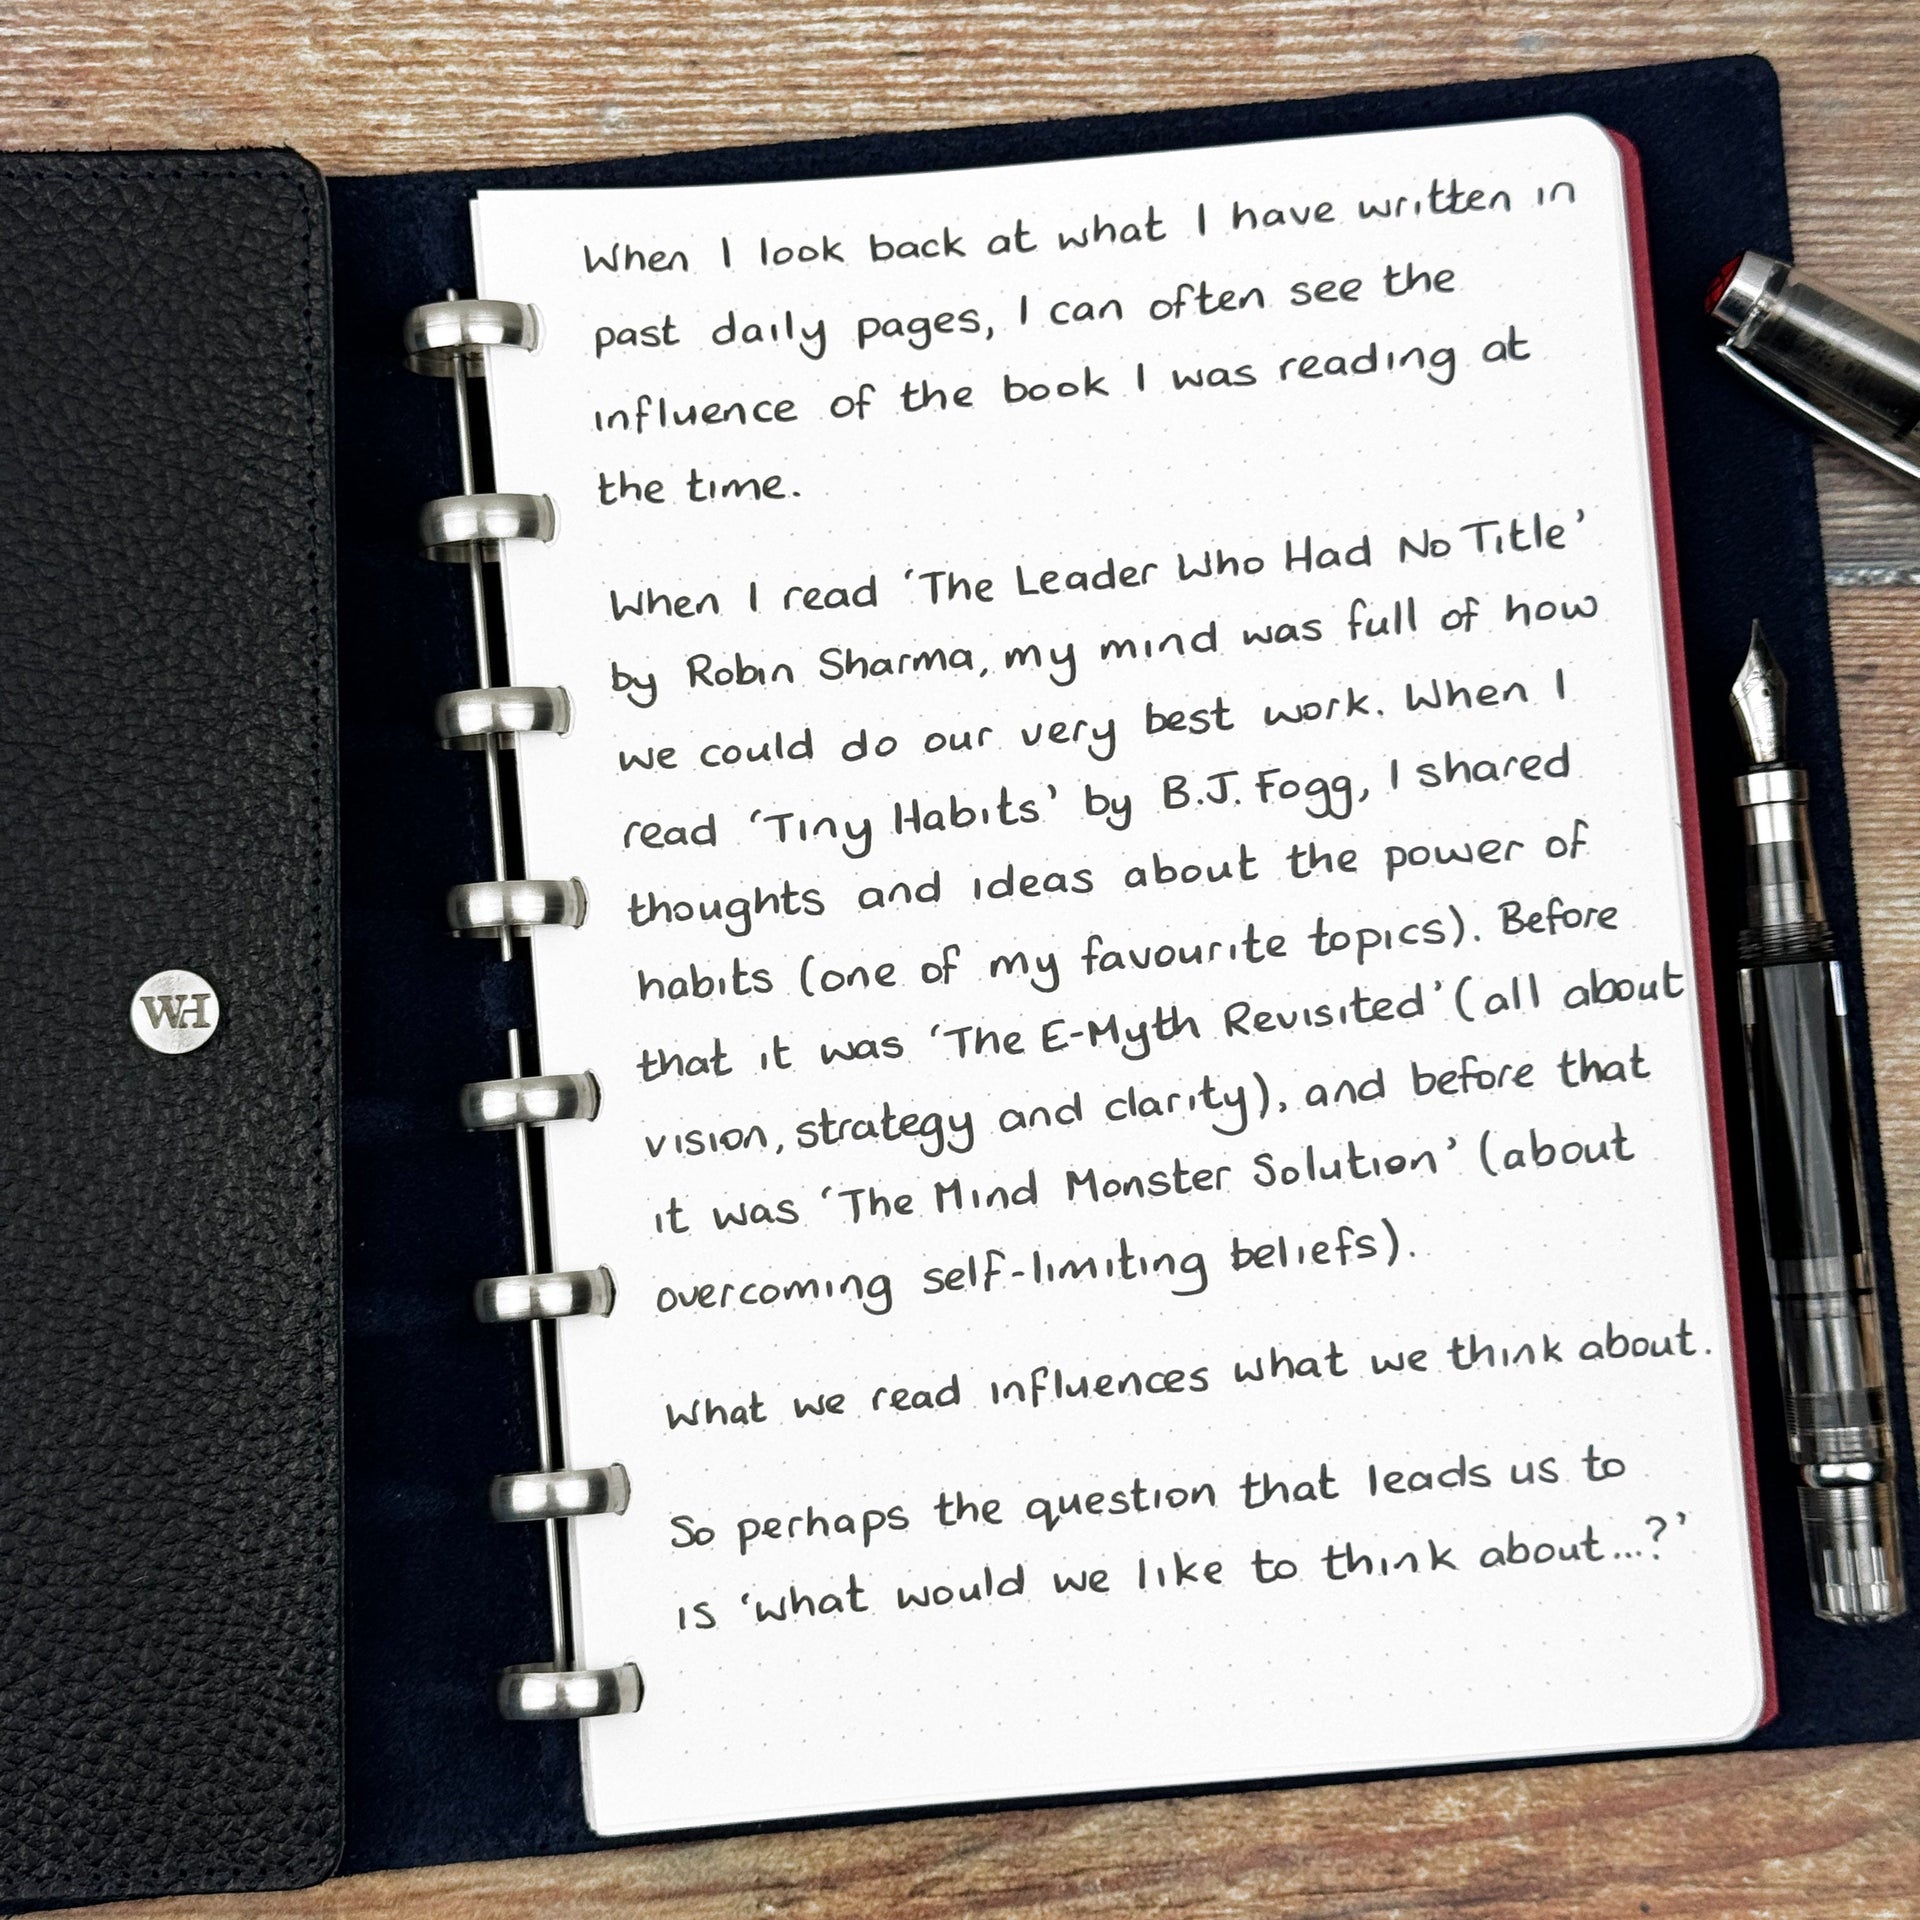 WH
When I look back at what I have written in
past daily pages, I can often see the
influence of the book I was reading at
the time.
When I read ‘The Leader Who Had No Title’
by Robin Sharma, my mind was full of how
we could do our very best work. When I
read ‘Tiny Habits’ by B.J. Fogg, I shared
thoughts and ideas about the power of
habits (one of my favourite topics). Before
that it was ‘The E-Myth Revisited’ (all about
vision, strategy and clarity), and before that
it was ‘The Mind Monster Solution’ (about
overcoming self-limiting beliefs).
What we read influences what we think about.
So perhaps the question that leads us to
is ‘what would we like to think about...?’